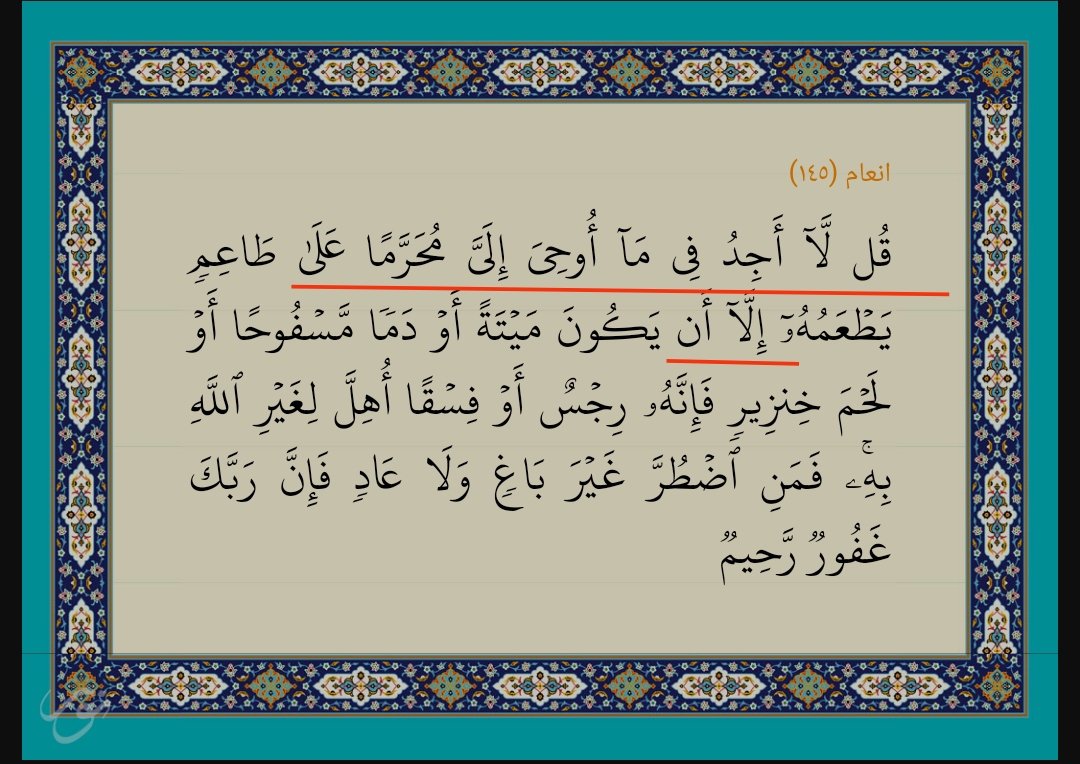 انعام (١٤٥)
قُل لَّآ أَجِدُ فِى مَآ أُوحِىَ إِلَىَّ مُحَرَّمًا عَلَىٰ طَاعِمٍۢ
يَطْعَمُهُۥٓ إِلَّآ أَن يَكُونَ مَيْتَةً أَوْ دَمًۭا مَّسْفُوحًا أَوْ
لَحْمَ خِنزِيرٍۢ فَإِنَّهُۥ رِجْسٌ أَوْ فِسْقًا أُهِلَّ لِغَيْرِ ٱللَّهِ
بِهِۦ ۚ فَمَنِ ٱضْطُرَّ غَيْرَ بَاغٍۢ وَلَا عَادٍۢ فَإِنَّ رَبَّكَ
غَفُورٌۭ رَّحِيمٌۭ